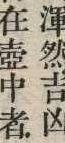 渾然吉凶
在壺中者